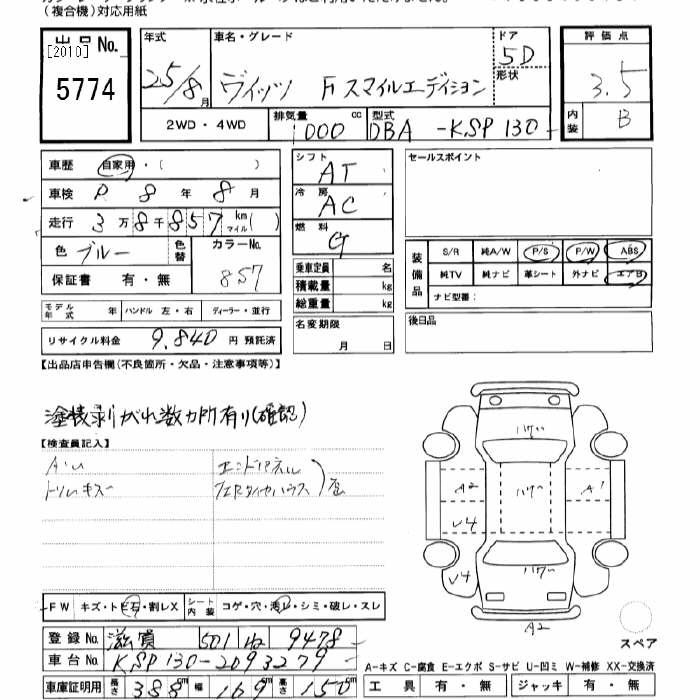 (複合機)対応用紙
出品No.
[2010]
5774
年式
25/8月
車名・グレード
ヴィッツ F スマイルエディション
ドア
5D
形状
評価点
3.5
内装
B
2WD・4WD
排気量
1000 cc
型式
DBA-KSP130
車歴 自家用・( )
車検 R 8年 8月
走行 3万8千857 km マイル( )
色 ブルー 色替 カラーNo. 857
保証書 有・無
モデル年式 年 ハンドル 左・右 ディーラー・並行
リサイクル料金 9,840 円 預託済
シフト AT
冷房 AC
燃料 G
乗車定員 名
積載量 kg
総重量 kg
名変期限
月 日
セールスポイント
装備品
S/R 純A/W P/S P/W ABS
純TV 純ナビ 革シート 外ナビ エアB
ナビ型番:
後日品
【出品店申告欄(不良箇所・欠品・注意事項等)】
塗装剥がれ数ヵ所有り(確認)
【検査員記入】
A・U
トリムキズ
エンドパネル
FW キズ・トビ石・割レX シート内装 コゲ・穴・汚レ・シミ・破レ・スレ
登録No. 滋賀 501 ね 9478
車台No. KSP130-2093279
車庫証明用 長さ 388cm 幅 169cm 高さ 150cm
ハゲ
A2 ハゲ A1
U4
ハゲ
U4
A2
スペア
A-キズ C-腐食 E-エクボ S-サビ U-凹ミ W-補修 XX-交換済
工具 有・無 ジャッキ 有・無